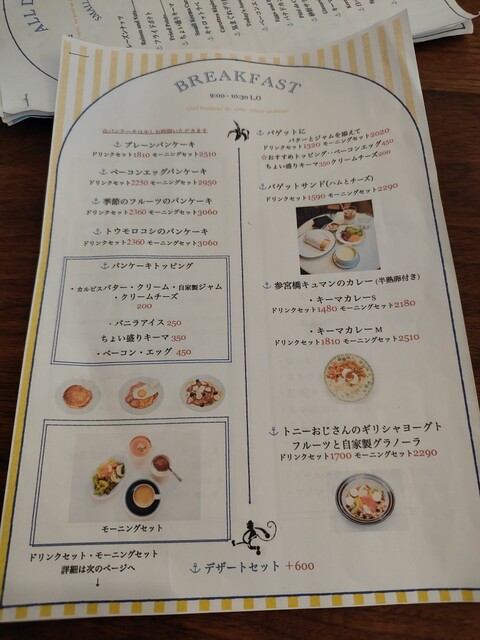 BREAKFAST
9:00 - 10:30 L.O
プレーンパンケーキ
ドリンクセット1810 モーニングセット2510
ベーコンエッグパンケーキ
ドリンクセット2250 モーニングセット2950
季節のフルーツのパンケーキ
ドリンクセット2360 モーニングセット3060
トウモロコシのパンケーキ
ドリンクセット2360 モーニングセット3060
パンケーキトッピング
・カルピスバター・クリーム・自家製ジャム
・クリームチーズ
200
・バニラアイス 250
ちょい盛りキーマ 350
・ベーコン・エッグ 450
モーニングセット
ドリンクセット・モーニングセット
詳細は次のページへ
↓
バゲットに
バターとジャムを添えて
ドリンクセット1320 モーニングセット2020
☆おすすめトッピング‥ベーコンエッグ450
ちょい盛りキーマ350クリームチーズ200
バゲットサンド(ハムとチーズ)
ドリンクセット1590 モーニングセット2290
参宮橋キュマンのカレー(半熟卵付き)
・キーマカレーS
ドリンクセット1480 モーニングセット2180
・キーマカレー M
ドリンクセット1810 モーニングセット2510
トニーおじさんのギリシャヨーグト
フルーツと自家製グラノーラ
ドリンクセット1700 モーニングセット2290
デザートセット +600